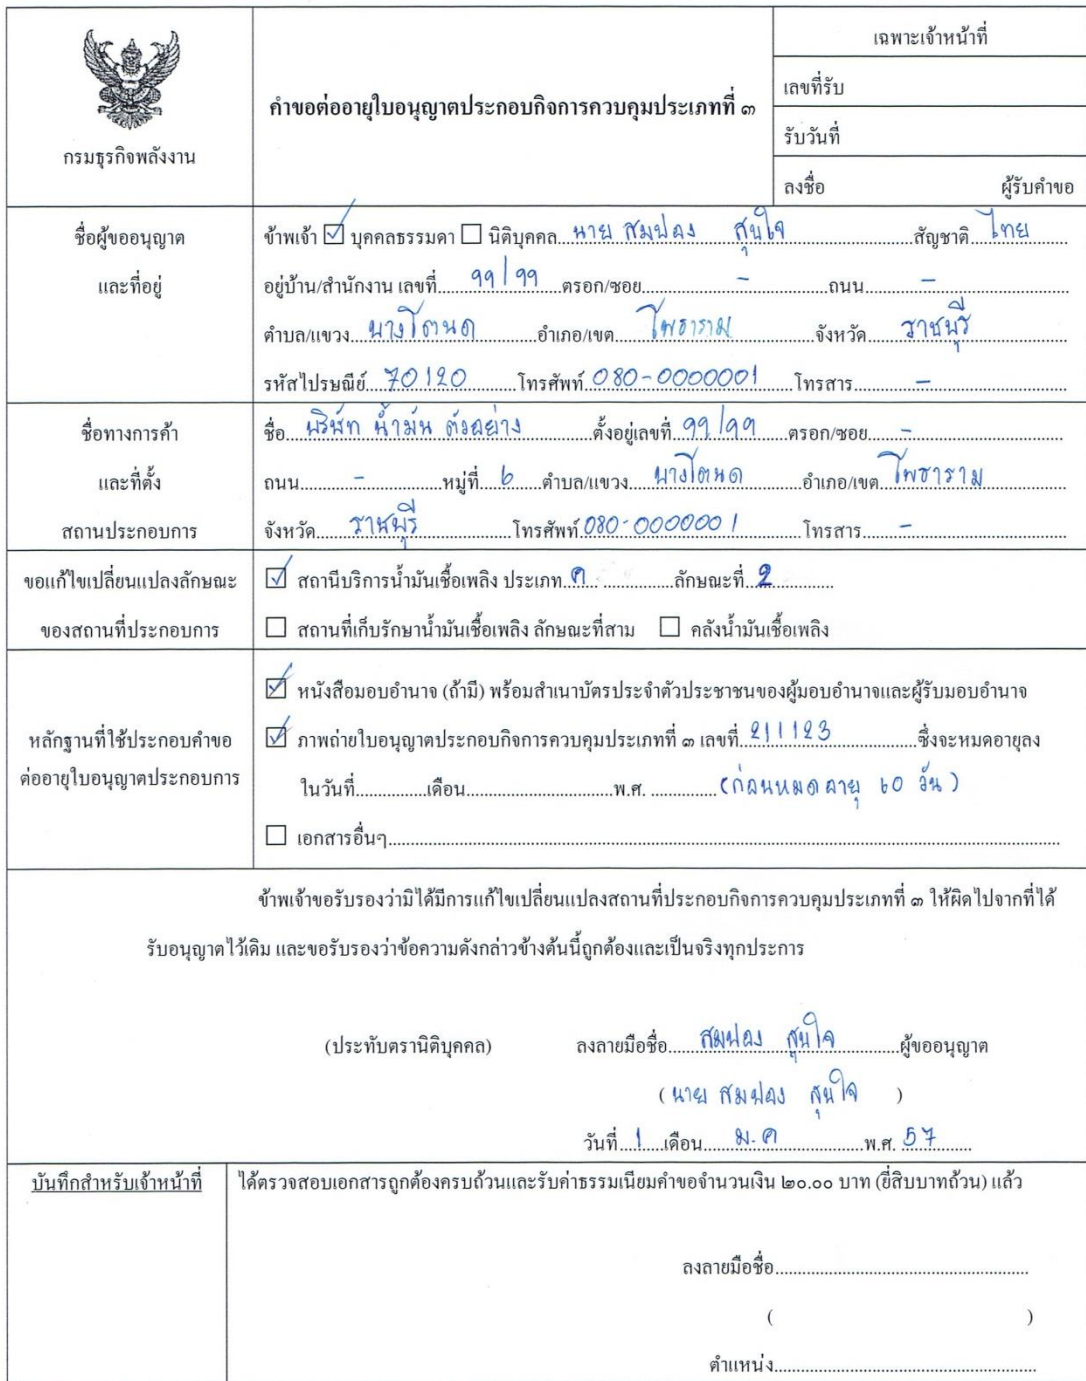 กรมธุรกิจพลังงาน
คำขอต่ออายุใบอนุญาตประกอบกิจการควบคุมประเภทที่ ๓
เฉพาะเจ้าหน้าที่
เลขที่รับ
รับวันที่
ลงชื่อ ผู้รับคำขอ
ชื่อผู้ขออนุญาต
และที่อยู่
ข้าพเจ้า ☑ บุคคลธรรมดา ☐ นิติบุคคล นาย สมปอง สุขใจ สัญชาติ ไทย
อยู่บ้าน/สำนักงาน เลขที่ 99/99 ตรอก/ซอย - ถนน -
ตำบล/แขวง บางโตนด อำเภอ/เขต โพธาราม จังหวัด ราชบุรี
รหัสไปรษณีย์ 70120 โทรศัพท์ 080-0000001 โทรสาร -
ชื่อทางการค้า
และที่ตั้ง
สถานประกอบการ
ชื่อ บริษัท น้ำมัน ตัวอย่าง ตั้งอยู่เลขที่ 99/99 ตรอก/ซอย -
ถนน - หมู่ที่ 6 ตำบล/แขวง บางโตนด อำเภอ/เขต โพธาราม
จังหวัด ราชบุรี โทรศัพท์ 080-0000001 โทรสาร -
ขอแก้ไขเปลี่ยนแปลงลักษณะ
ของสถานที่ประกอบการ
☑ สถานีบริการน้ำมันเชื้อเพลิง ประเภท ค ลักษณะที่ 2
☐ สถานที่เก็บรักษาน้ำมันเชื้อเพลิง ลักษณะที่สาม ☐ คลังน้ำมันเชื้อเพลิง
หลักฐานที่ใช้ประกอบคำขอ
ต่ออายุใบอนุญาตประกอบการ
☑ หนังสือมอบอำนาจ (ถ้ามี) พร้อมสำเนาบัตรประจำตัวประชาชนของผู้มอบอำนาจและผู้รับมอบอำนาจ
☑ ภาพถ่ายใบอนุญาตประกอบกิจการควบคุมประเภทที่ ๓ เลขที่ 211123 ซึ่งจะหมดอายุลง
ในวันที่ เดือน พ.ศ. (ก่อนหมดอายุ 60 วัน)
☐ เอกสารอื่นๆ
ข้าพเจ้าขอรับรองว่ามิได้มีการแก้ไขเปลี่ยนแปลงสถานที่ประกอบกิจการควบคุมประเภทที่ ๓ ให้ผิดไปจากที่ได้
รับอนุญาตไว้เดิม และขอรับรองว่าข้อความดังกล่าวข้างต้นนี้ถูกต้องและเป็นจริงทุกประการ
(ประทับตรานิติบุคคล) ลงลายมือชื่อ สมปอง สุขใจ ผู้ขออนุญาต
(นาย สมปอง สุขใจ)
วันที่ 1 เดือน ม.ค พ.ศ. 57
บันทึกสำหรับเจ้าหน้าที่
ได้ตรวจสอบเอกสารถูกต้องครบถ้วนและรับค่าธรรมเนียมคำขอจำนวนเงิน ๒๐.๐๐ บาท (ยี่สิบบาทถ้วน) แล้ว
ลงลายมือชื่อ
( )
ตำแหน่ง